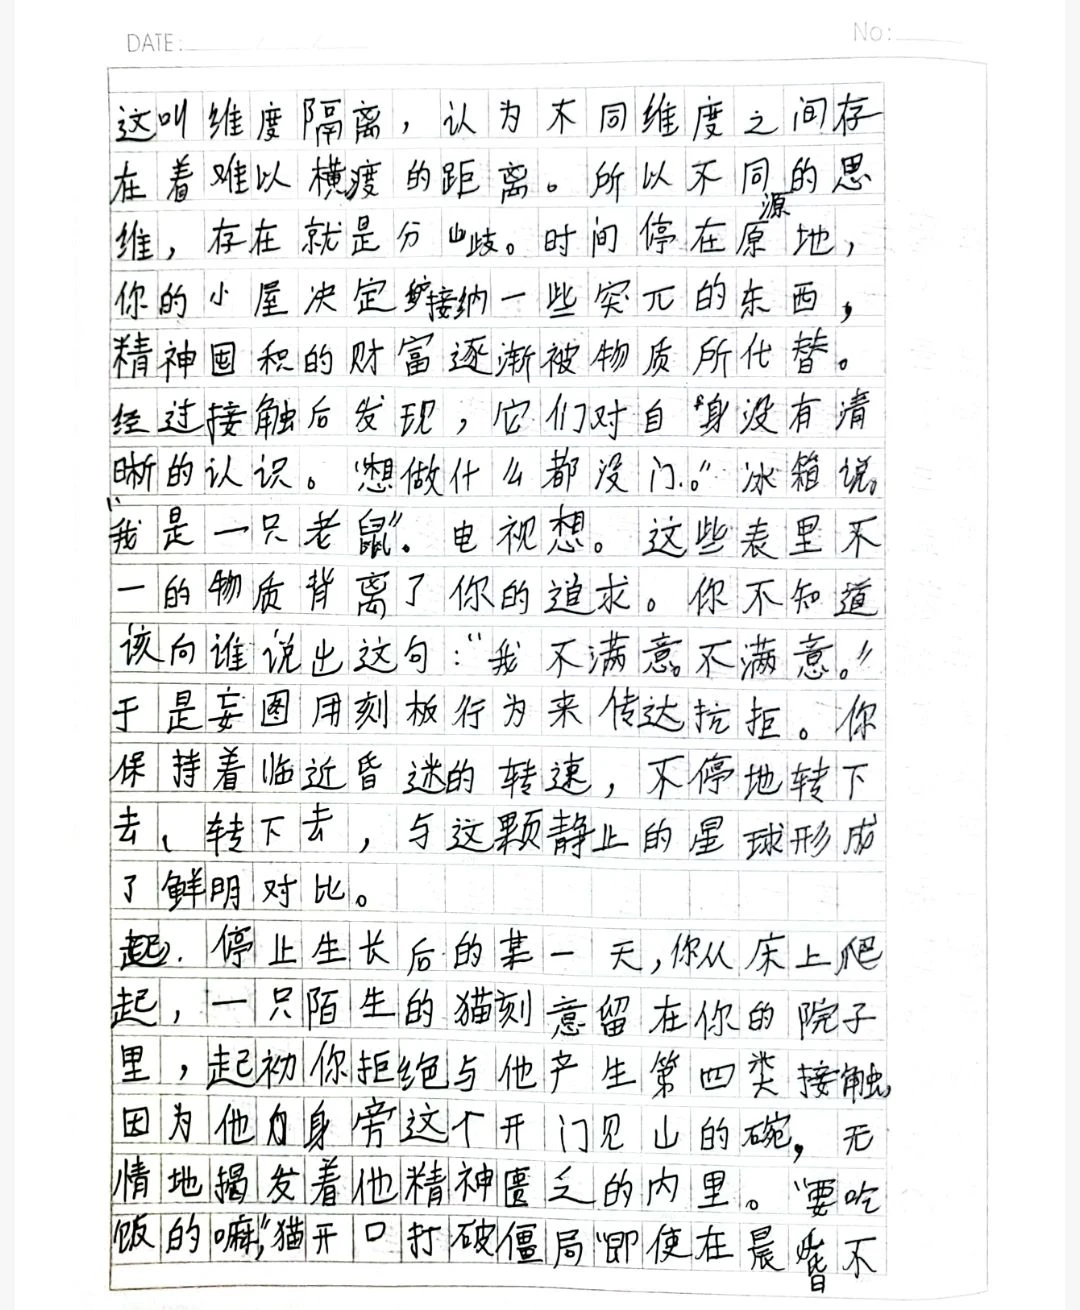 DATE:
No:
这叫维度隔离，认为不同维度之间存
在着难以横渡的距离。所以不同的思
源
维，存在就是分岐。时间停在原地，
你的小屋决定接纳一些突兀的东西，
精神囤积的财富逐渐被物质所代替。
经过接触后发现，它们对自身没有清
晰的认识。“想做什么都没门。”冰箱说。
“我是一只老鼠”。电视想。这些表里不
一的物质背离了你的追求。你不知道
该向谁说出这句：“我不满意。不满意。”
于是妄图用刻板行为来传达抗拒。你
保持着临近昏迷的转速，不停地转下
去、转下去，与这颗静止的星球形成
了鲜明对比。
起．停止生长后的某一天，你从床上爬
起，一只陌生的猫刻意留在你的院子
里，起初你拒绝与他产生第四类接触，
因为他身旁这个开门见山的碗，无
情地揭发着他精神匮乏的内里。“要吃
饭的嘛，”猫开口打破僵局“即使在晨昏不